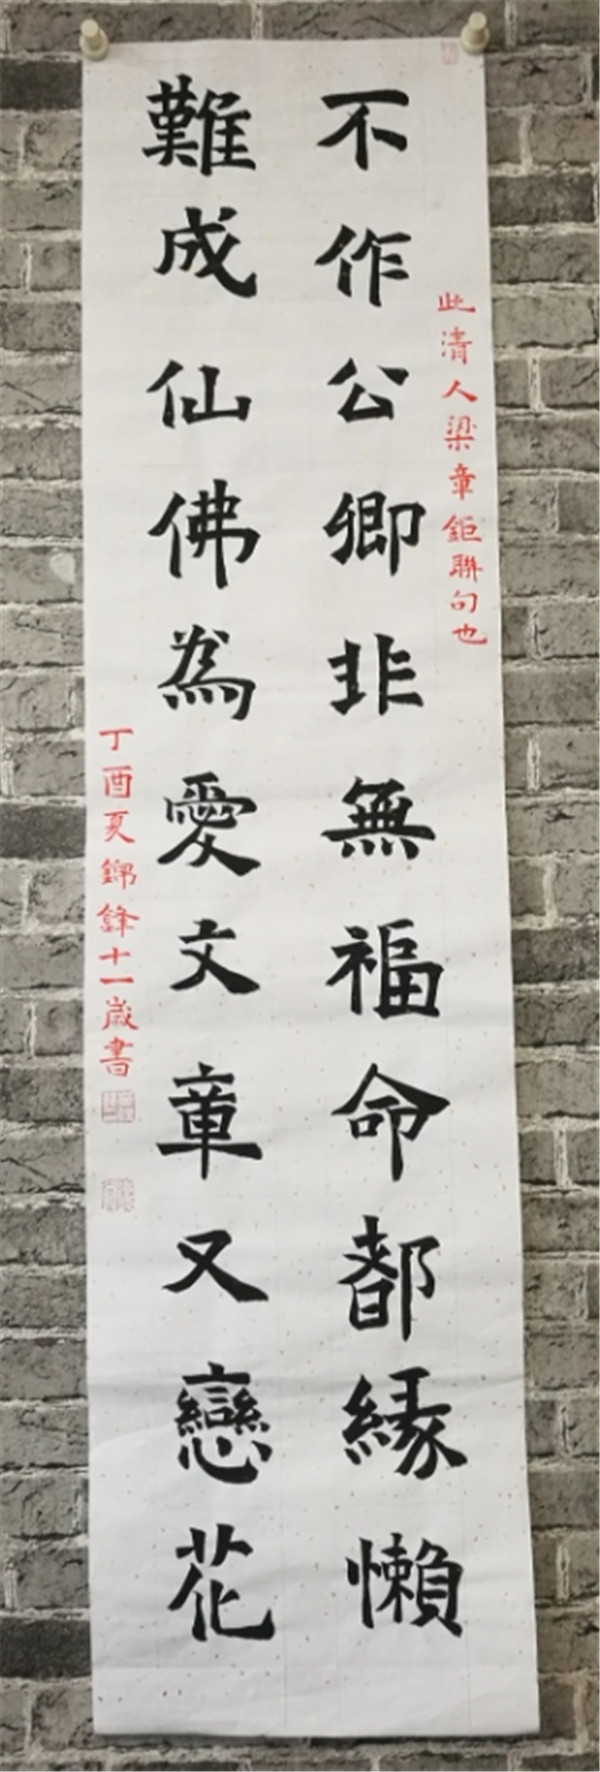 此清人梁章鉅聯句也
不作公卿非無福命都緣懶
難成仙佛為愛文章又戀花
丁酉夏錦鋒十一歲書